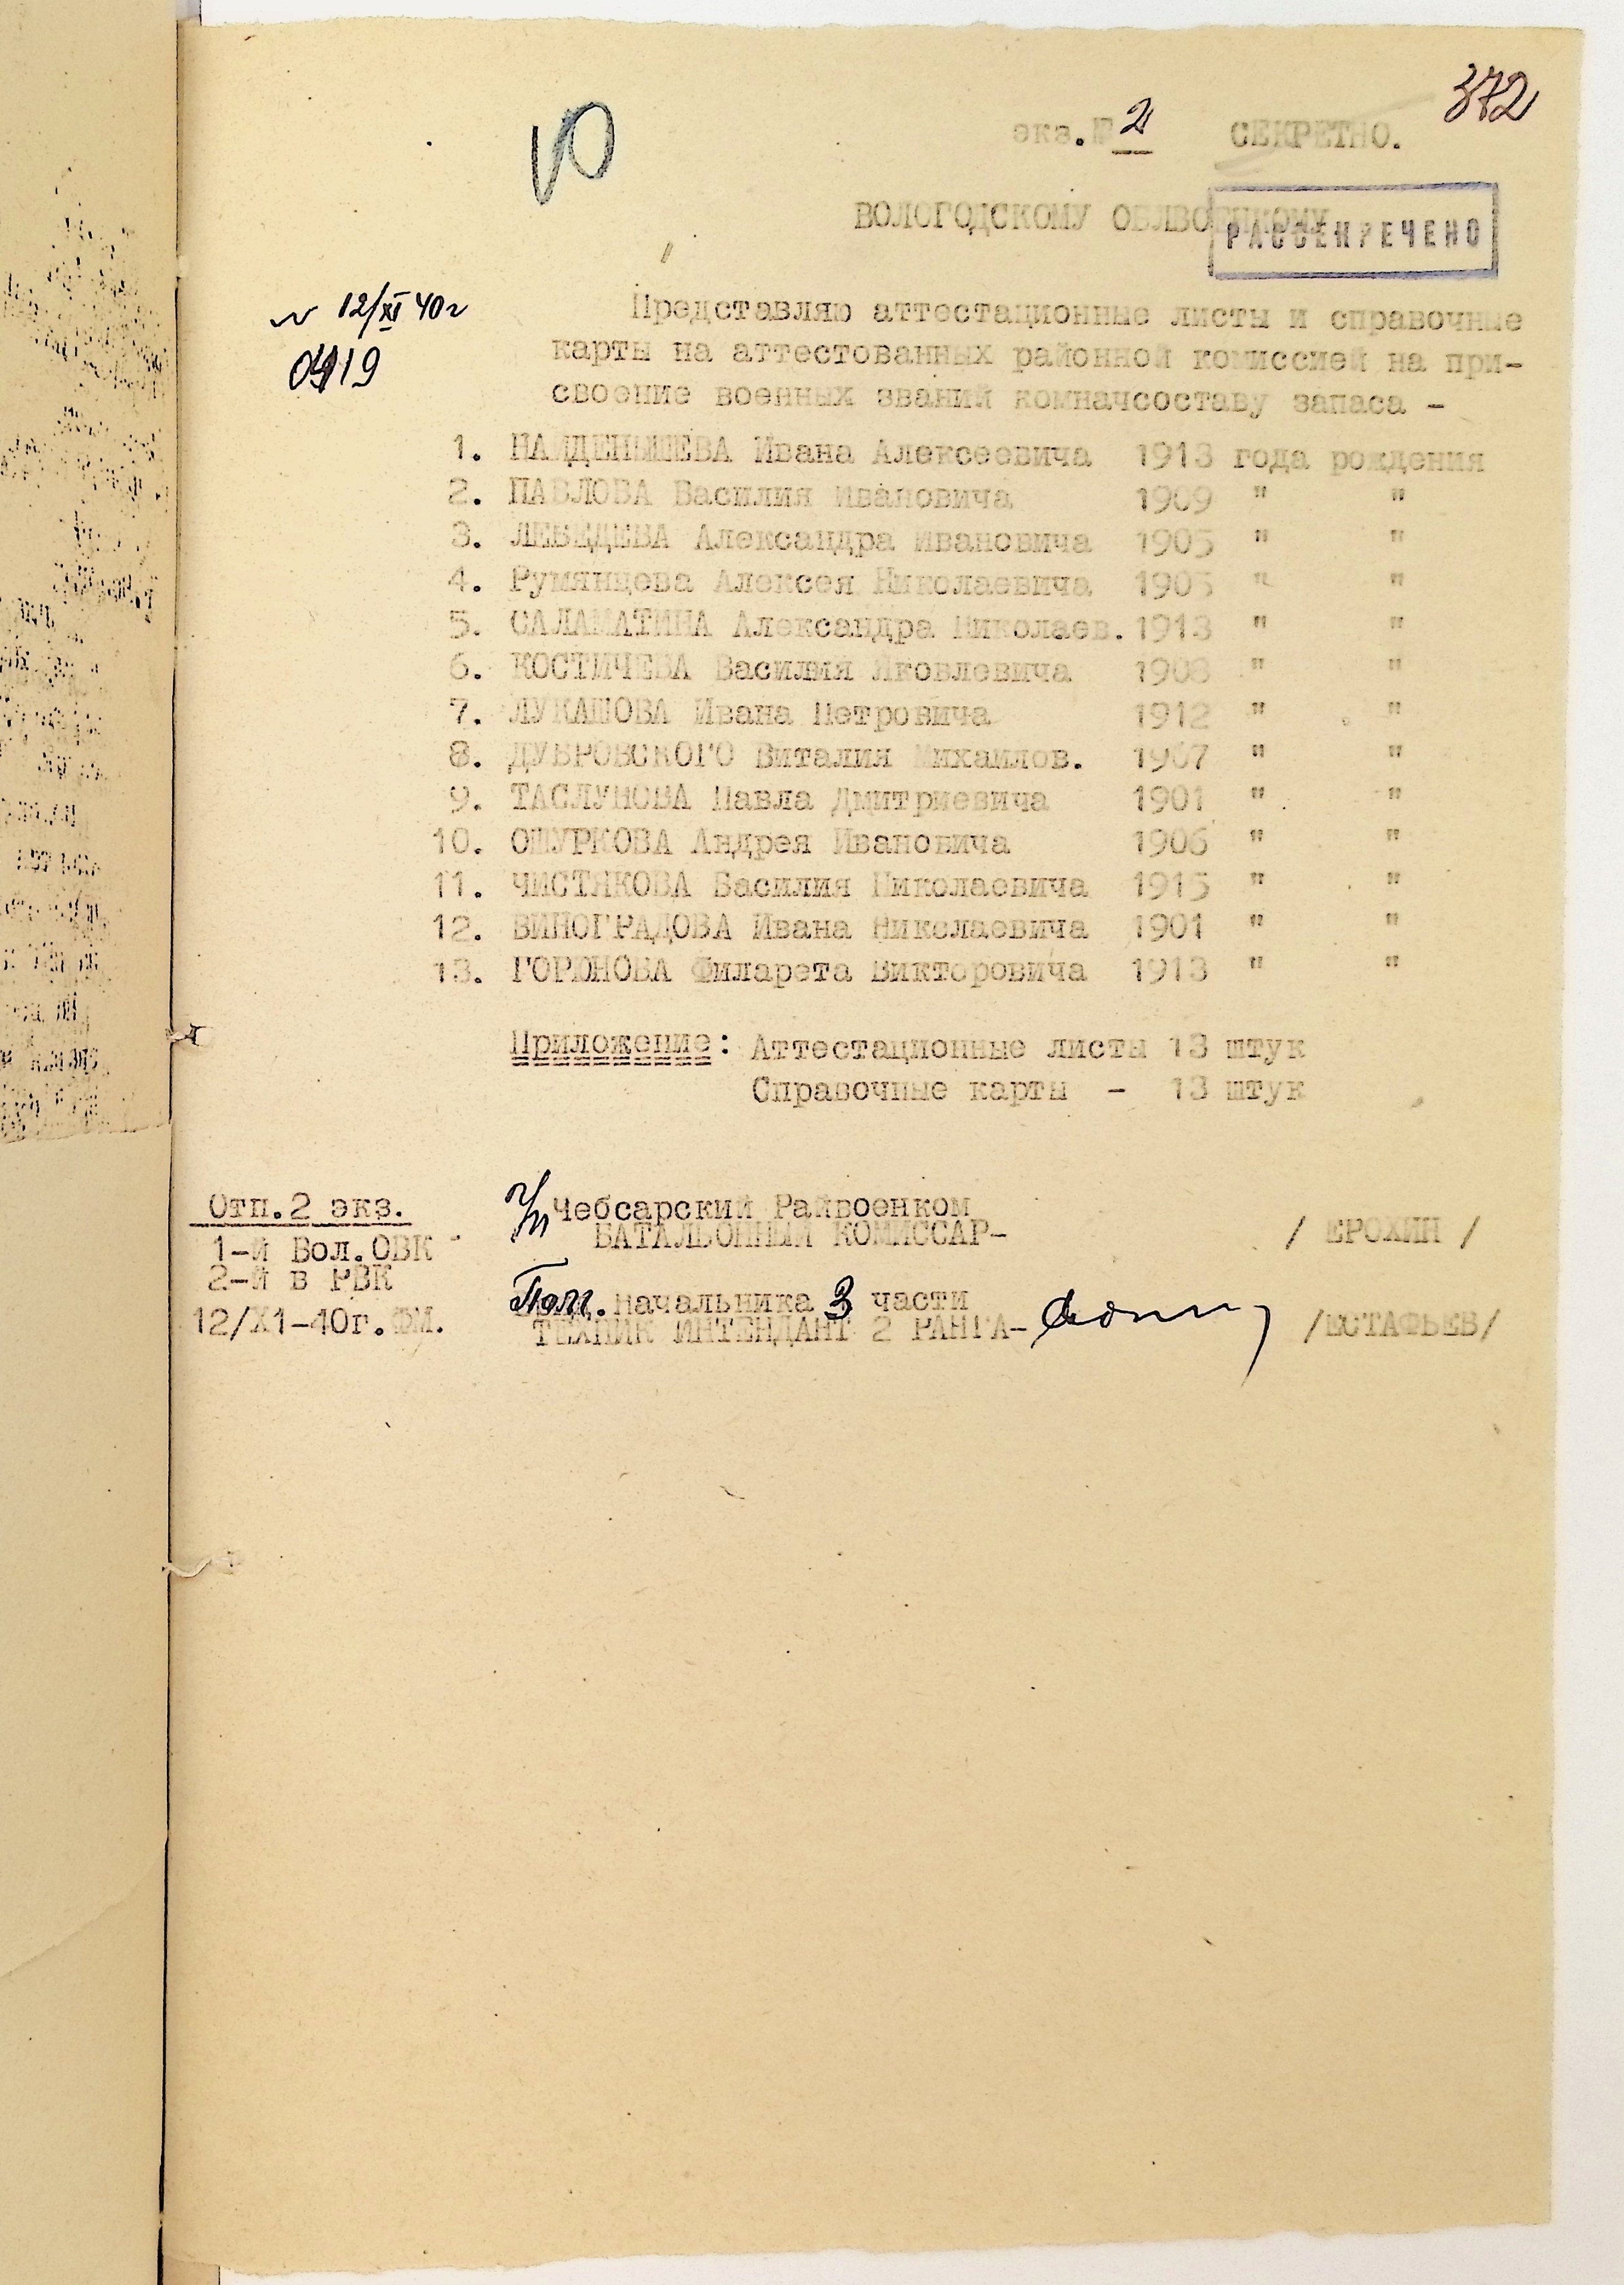 372
экз.№ 2 СЕКРЕТНО.
ВОЛОГОДСКОМУ ОБЛВОЕНКОМУ
РАССЕКРЕЧЕНО
12/XI 40г
0419
Представляю аттестационные листы и справочные
карты на аттестованных районной комиссией на при-
своение военных званий комначсоставу запаса -
1. НАЙДЕНЫШЕВА Ивана Алексеевича 1913 года рождения
2. ПАВЛОВА Василия Ивановича 1909 " "
3. ЛЕБЕДЕВА Александра Ивановича 1905 " "
4. Румянцева Алексея Николаевича 1905 " "
5. САЛАМАТИНА Александра Николаев. 1913 " "
6. КОСТИЧЕВА Василия Яковлевича 1908 " "
7. ЛУКАШОВА Ивана Петровича 1912 " "
8. ДУБРОВСКОГО Виталия Михайлов. 1907 " "
9. ТАСЛУНОВА Павла Дмитриевича 1901 " "
10. ОШУРКОВА Андрея Ивановича 1906 " "
11. ЧИСТЯКОВА Василия Николаевича 1915 " "
12. ВИНОГРАДОВА Ивана Николаевича 1901 " "
13. ГОРЮНОВА Филарета Викторовича 1913 " "
Приложение: Аттестационные листы 13 штук
Справочные карты - 13 штук
п/п Чебсарский Райвоенком
БАТАЛЬОННЫЙ КОМИССАР- / ЕРОХИН /
Пом. начальника 3 части
ТЕХНИК ИНТЕНДАНТ 2 РАНГА- /ЕСТАФЬЕВ/
Отп.2 экз.
1-й Вол.ОВК
2-й в РВК
12/X1-40г.ФМ.